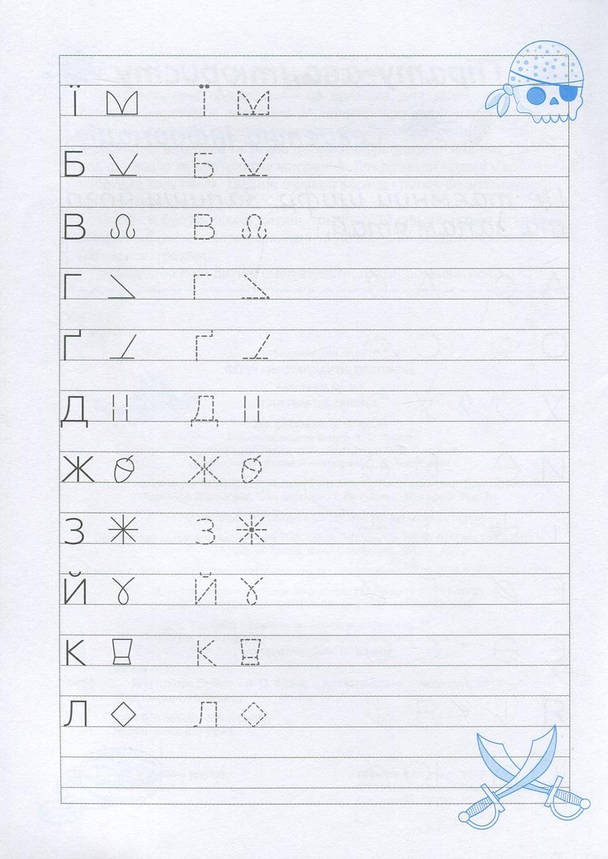 Ї Ї
Б Б
В В
Г Г
Ґ Ґ
Д Д
Ж Ж
З З
Й Й
К К
Л Л